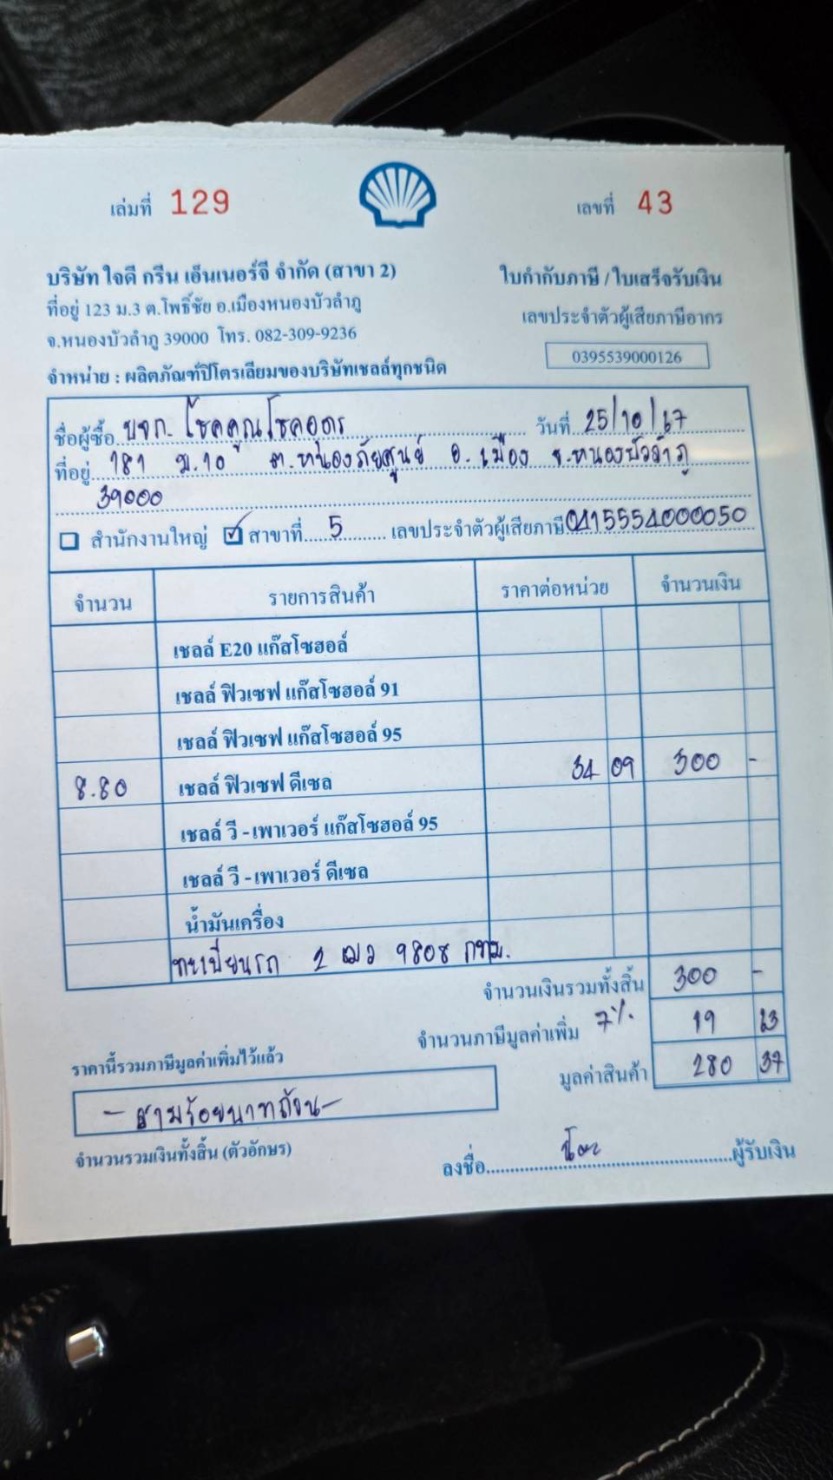 เล่มที่ 129
เลขที่ 43
บริษัท ใจดี กรีน เอ็นเนอร์จี จำกัด (สาขา 2)
ใบกำกับภาษี / ใบเสร็จรับเงิน
ที่อยู่ 123 ม.3 ต.โพธิ์ชัย อ.เมืองหนองบัวลำภู
เลขประจำตัวผู้เสียภาษีอากร
จ.หนองบัวลำภู 39000 โทร. 082-309-9236
0395539000126
จำหน่าย : ผลิตภัณฑ์ปิโตรเลียมของบริษัทเชลล์ทุกชนิด
ชื่อผู้ซื้อ บจก. โชคคูณโชคอุดร วันที่ 25/10/67
ที่อยู่ 181 ม.10 ต.หนองภัยศูนย์ อ.เมือง จ.หนองบัวลำภู
39000
สำนักงานใหญ่ ✓ สาขาที่ 5 เลขประจำตัวผู้เสียภาษี 0415554000050
จำนวน รายการสินค้า ราคาต่อหน่วย จำนวนเงิน
เชลล์ E20 แก๊สโซฮอล์
เชลล์ ฟิวเซฟ แก๊สโซฮอล์ 91
เชลล์ ฟิวเซฟ แก๊สโซฮอล์ 95
8.80 เชลล์ ฟิวเซฟ ดีเซล 34 09 300 -
เชลล์ วี - เพาเวอร์ แก๊สโซฮอล์ 95
เชลล์ วี - เพาเวอร์ ดีเซล
น้ำมันเครื่อง
ทะเบียนรถ 2 ฒว 9808 กทม.
จำนวนเงินรวมทั้งสิ้น 300 -
จำนวนภาษีมูลค่าเพิ่ม 7% 19 63
ราคานี้รวมภาษีมูลค่าเพิ่มไว้แล้ว
มูลค่าสินค้า 280 37
- สามร้อยบาทถ้วน -
จำนวนรวมเงินทั้งสิ้น (ตัวอักษร)
ลงชื่อ ผู้รับเงิน